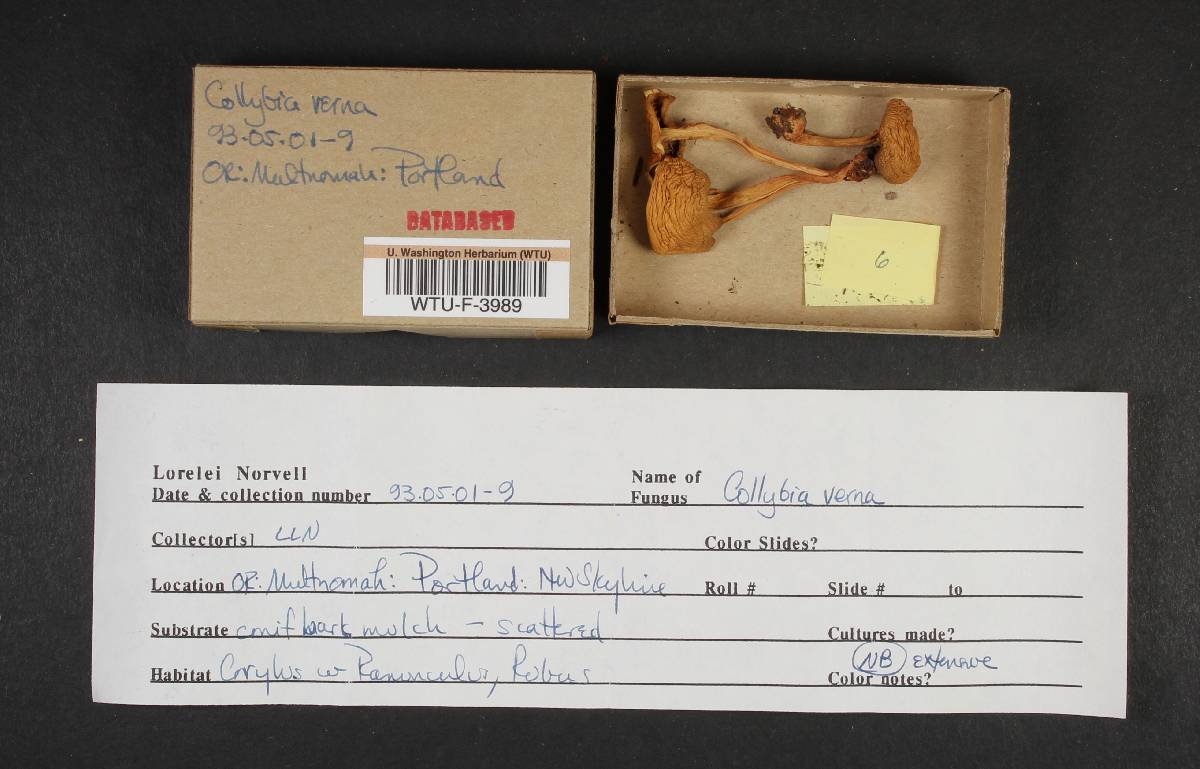 Collybia verna
93.05.01-9
OR: Multnomah: Portland
DATABASED
U. Washington Herbarium (WTU)
WTU-F-3989
6
Lorelei Norvell
Date & collection number 93.05.01-9
Name of
Fungus Collybia verna
Collector[s] LLN
Color Slides?
Location OR: Multnomah: Portland: NW Skyline
Roll # Slide # to
Substrate conif bark mulch - scattered
Cultures made?
Habitat Corylus w Ranunculus, Rubus
NB extensive
Color notes?